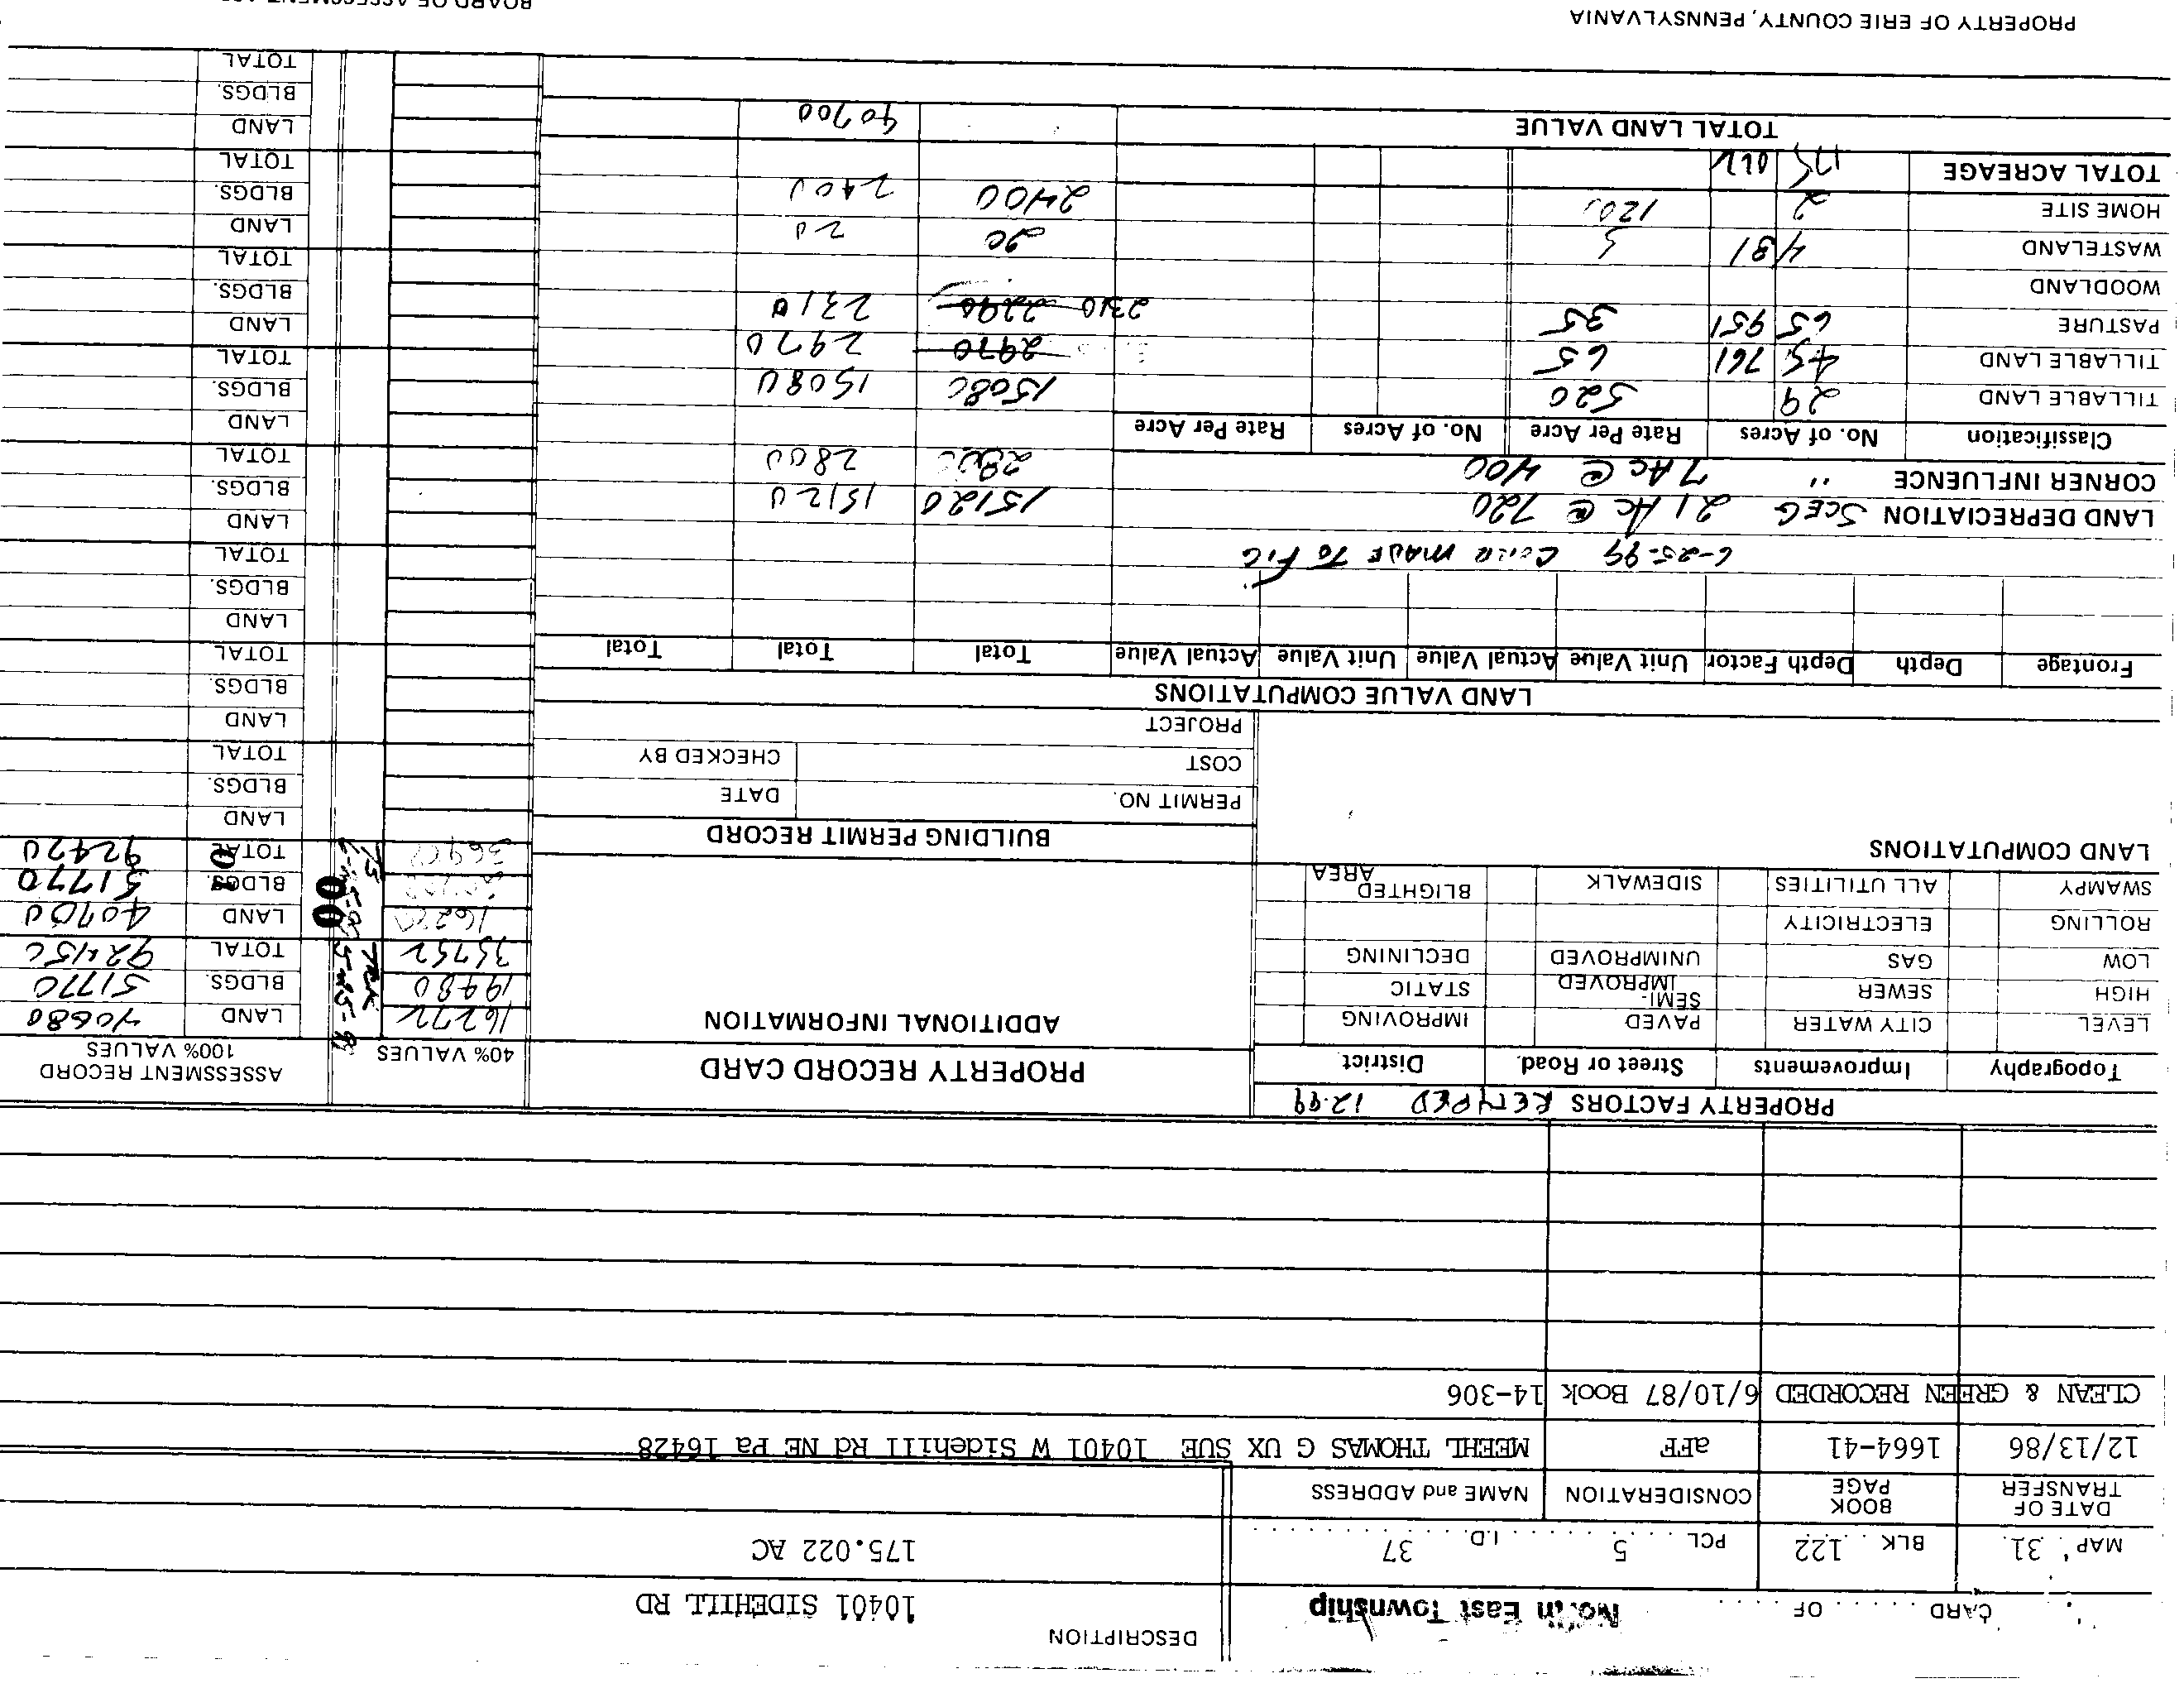 DESCRIPTION
CARD ..... OF ..... North East Township 10401 SIDEHILL RD
MAP 31. BLK 122 PCL 5 I.D. 37 175.022 AC
DATE OF TRANSFER BOOK PAGE CONSIDERATION NAME and ADDRESS
12/13/86 1664-41 aFF MEEHL THOMAS G UX SUE 10401 W Sidehill Rd NE Pa 16428
CLEAN & GREEN RECORDED 6/10/87 Book 14-306
PROPERTY FACTORS RETYPED 12-99
Topography Improvements Street or Road. District
LEVEL CITY WATER PAVED IMPROVING
HIGH SEWER SEMI-IMPROVED STATIC
LOW GAS UNIMPROVED DECLINING
ROLLING ELECTRICITY
SWAMPY ALL UTILITIES SIDEWALK BLIGHTED AREA
LAND COMPUTATIONS
PROPERTY RECORD CARD
ADDITIONAL INFORMATION
BUILDING PERMIT RECORD
PERMIT NO. DATE
COST CHECKED BY
PROJECT
40% VALUES ASSESSMENT RECORD 100% VALUES
16272 LAND 40680
BLDGS. 51770
35752 TOTAL
00 LAND 40700
BLDGS. 51770
01 TOTAL 92420
LAND
BLDGS.
TOTAL
LAND
BLDGS.
TOTAL
LAND
BLDGS.
TOTAL
LAND
BLDGS.
TOTAL
LAND
BLDGS.
TOTAL
LAND
BLDGS.
TOTAL
LAND
BLDGS.
TOTAL
LAND
BLDGS.
TOTAL
LAND VALUE COMPUTATIONS
Frontage Depth Depth Factor Unit Value Actual Value Unit Value Actual Value Total Total Total
6-25-99 MADE TO
LAND DEPRECIATION SCEG 21 Ac @ 720 15120 15120
CORNER INFLUENCE " 7 Ac @ 400 2800 2800
Classification No. of Acres Rate Per Acre No. of Acres Rate Per Acre
TILLABLE LAND 29 520 15080 15080
TILLABLE LAND 45 761 65 2970 2970
PASTURE 65 951 35 2310 2290 2310
WOODLAND
WASTELAND 4 5 20 20
HOME SITE 2 1200 2400 2400
TOTAL ACREAGE 175 022
TOTAL LAND VALUE 40700
PROPERTY OF ERIE COUNTY, PENNSYLVANIA